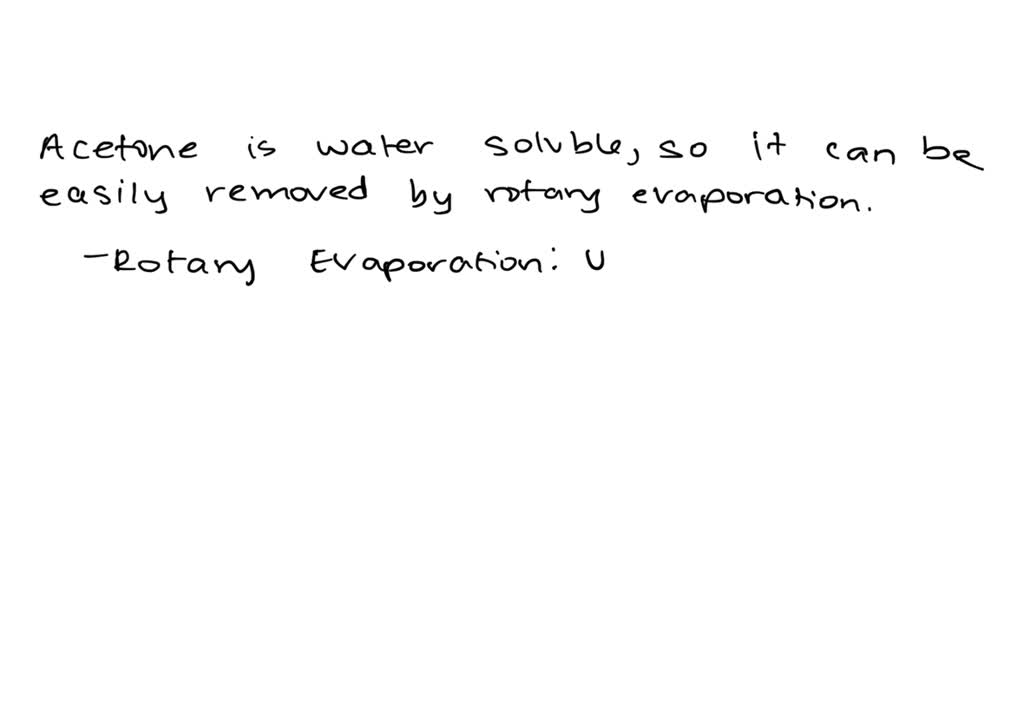 Acetone is water soluble, so it can be
easily removed by rotary evaporation.
- Rotary Evaporation: U